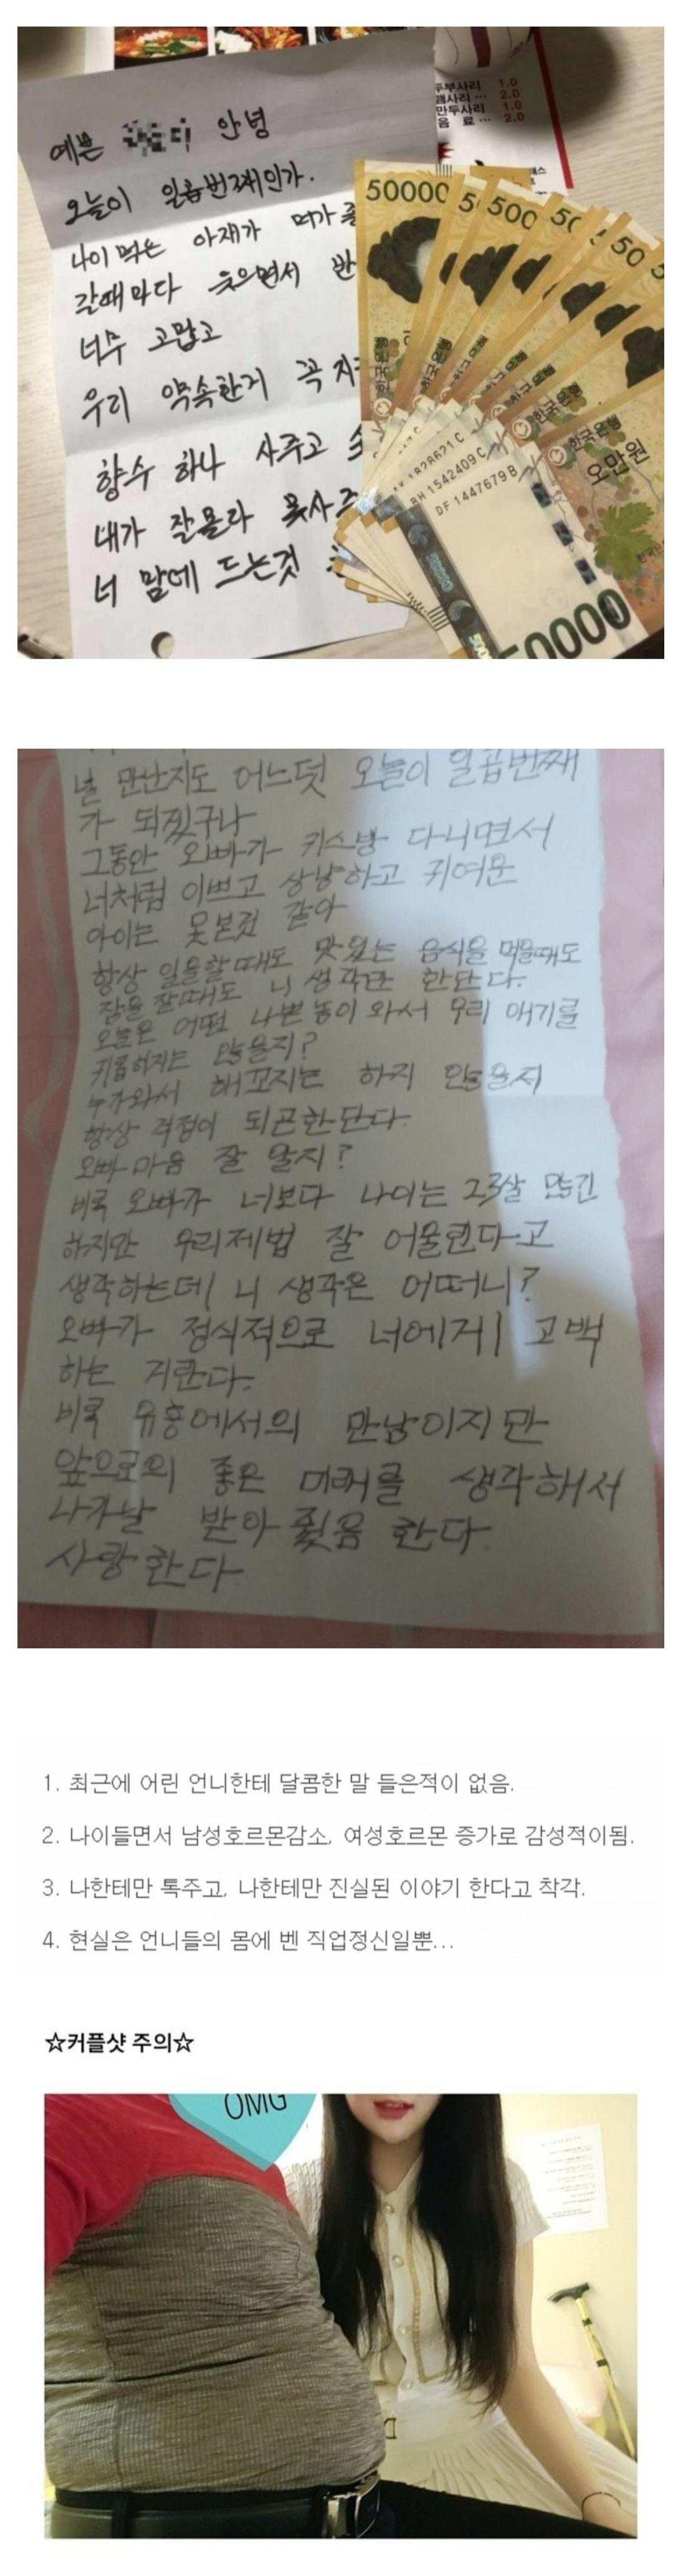 두부사리 1.0
사리 ... 2.0
만두사리 1.0
음 료 ... 2.0
예쁜 안녕
오늘이 일곱번째인가.
나이 먹은 아재가 머가 좋
갈때마다 웃으면서 반
너무 고맙고
우리 약속한거 꼭 지
향수 하나 사주고
내가 잘몰라 못사주
너 맘에 드는것
50000
한국은행
한국은행
한국은행
한국은행
한국은행
오만원
1828621 C
BH 1542409 C
DF 1447679 B
50000
널 만난지도 어느덧 오늘이 일곱번째
가 되겠구나
그동안 오빠가 키스방 다니면서
너처럼 이쁘고 상냥하고 귀여운
아이는 못본것 같아
항상 일을할때도 맛있는 음식을 먹을때도
잠을 잘때도 니 생각만 한단다.
오늘은 어떤 나쁜놈이 와서 우리 애기를
괴롭히지는 않을지?
누가와서 해꼬지는 하지 않을지
항상 걱정이 되곤한단다.
오빠 마음 잘 알지?
비록 오빠가 너보다 나이는 23살 많긴
하지만 우리제법 잘 어울린다고
생각하는데 니 생각은 어떠니?
오빠가 정식적으로 너에게 고백
하는 거란다.
비록 유흥에서의 만남이지만
앞으로의 좋은 미래를 생각해서
나가날 받아 줬음 한다.
사랑한다
1. 최근에 어린 언니한테 달콤한 말 들은적이 없음.
2. 나이들면서 남성호르몬감소, 여성호르몬 증가로 감성적이됨.
3. 나한테만 톡주고, 나한테만 진실된 이야기 한다고 착각.
4. 현실은 언니들의 몸에 벤 직업정신일뿐...
☆커플샷 주의☆
OMG